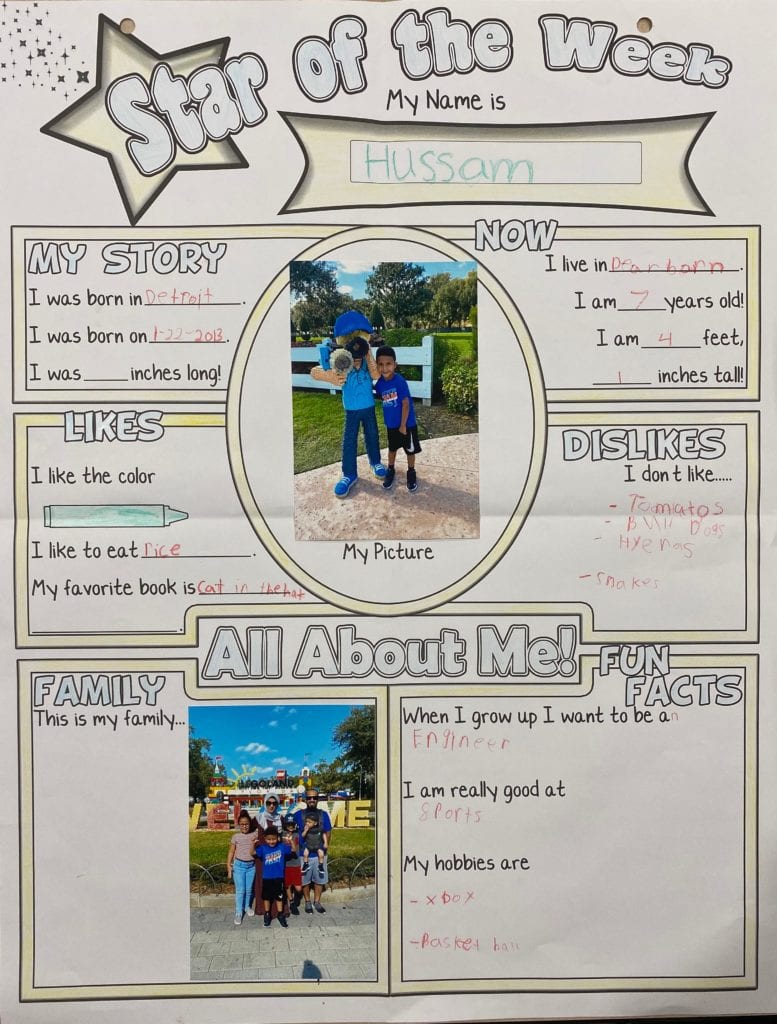 Star of the Week
My Name is
Hussam
MY STORY
I was born in Detroit.
I was born on 1-22-2013.
I was ____ inches long!
NOW
I live in Dearborn.
I am 7 years old!
I am 4 feet,
1 inches tall!
LIKES
I like the color
I like to eat rice.
My favorite book is cat in the hat
.
My Picture
DISLIKES
I don t like.....
- Tomatos
- Bull Dogs
- Hyenas
- snakes
All About Me!
FAMILY
This is my family...
LEGOLAND
WELCOME
FUN FACTS
When I grow up I want to be an
Engineer
I am really good at
Sports
My hobbies are
- xbox
- Basket ball